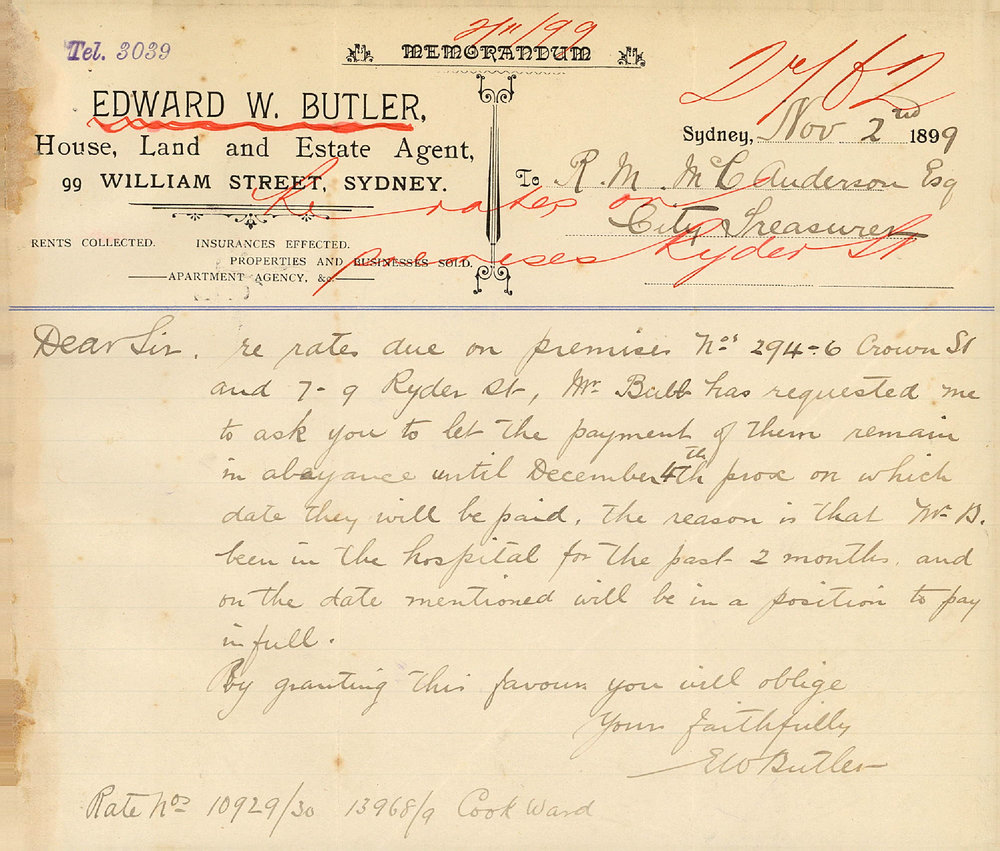 2/11/99
Tel. 3039
MEMORANDUM
27/62
EDWARD W. BUTLER,
House, Land and Estate Agent,
99 WILLIAM STREET, SYDNEY.
RENTS COLLECTED. INSURANCES EFFECTED.
PROPERTIES AND BUSINESSES SOLD.
APARTMENT AGENCY, &c.
Sydney, Nov 2nd 1899
To R. M. McC Anderson Esq
City Treasurer
Re rates on
premises Ryder St
Dear Sir. re rates due on premises Nos 294-6 Crown St
and 7-9 Ryder St, Mr Bubb has requested me
to ask you to let the payment of them remain
in abeyance until December 4th prox on which
date they will be paid. the reason is that Mr B.
been in the hospital for the past 2 months. and
on the date mentioned will be in a position to pay
in full.
By granting this favour you will oblige
Yours faithfully
E W Butler
Rate Nos 10929/30 13968/9 Cook Ward